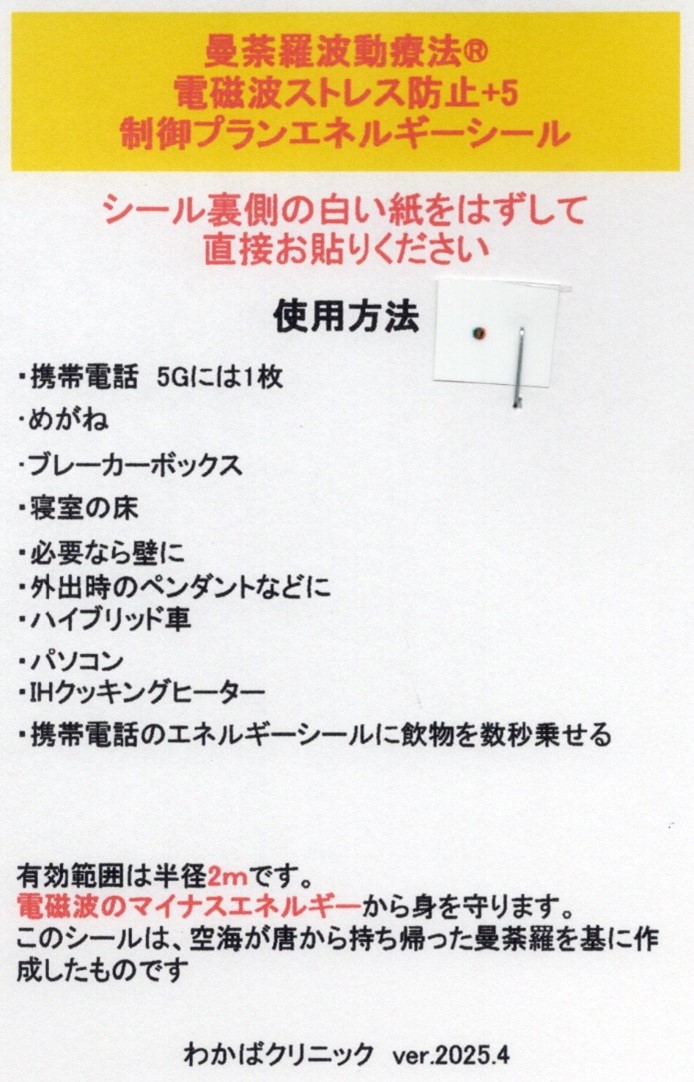 曼荼羅波動療法®
電磁波ストレス防止+5
制御プランエネルギーシール
シール裏側の白い紙をはずして
直接お貼りください
使用方法
・携帯電話　5Gには1枚
・めがね
・ブレーカーボックス
・寝室の床
・必要なら壁に
・外出時のペンダントなどに
・ハイブリッド車
・パソコン
・IHクッキングヒーター
・携帯電話のエネルギーシールに飲物を数秒乗せる
有効範囲は半径2mです。
電磁波のマイナスエネルギーから身を守ります。
このシールは、空海が唐から持ち帰った曼荼羅を基に作
成したものです
わかばクリニック　ver.2025.4